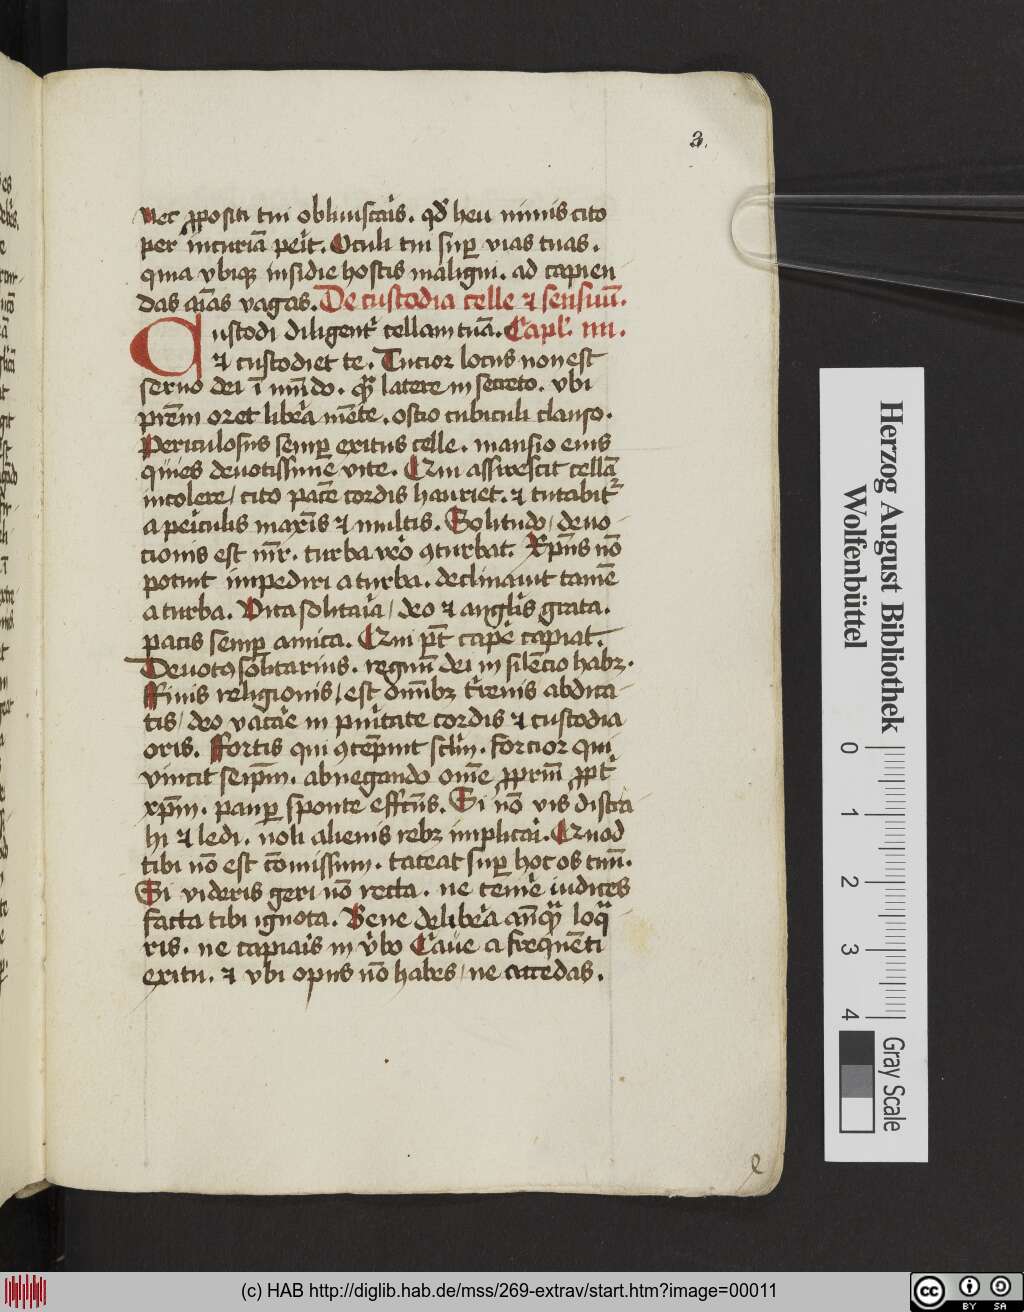 3.
nec ꝓpositi tui obliuiscar̄is. qd̄ heu nimis cito
per incuriā per̄it. Oculi tui suꝑ vias tuas.
quia vbiqꝫ insidie hostis maligni. ad capien
das aīas vagas. De custodia celle ⁊ sensuū.
Custodi diligent̄ cellam tuā. Capl̄. iiii.
⁊ custodiet te. Tucior locus non est
seruo dei ī mūdo. qͣ̄ latere in secreto. vbi
prēm oret libēra mēte. ostio cubiculi clauso.
Periculosus semꝑ exitus celle. mansio eius
quies deuotissime vite. Cum assuescit cellā
incolere / cito pacē cordis hauriet. ⁊ tutabit᷑
a peīculis maxīs ⁊ multis. Solitudo / deuo-
cionis est mr̄. turba vēo ꝯturbat. Xp̄ns nō
potuit impediri a turba. declinauit tamē
a turba. Vita solitaīa / deo ⁊ angl̄is grata.
pacis semꝑ amica. Cum pt̄ capē capiat.
Deuotꝰ solitarius. regnū dei in silēcio habꝫ.
ffinis religionis / est om̄ibꝫ tīrenis abdica-
tis / deo vacāe in puītate cordis ⁊ custodia
oris. ffortis qui ꝯtēpnit sclm̄. forcior qui
vincit seip̄m. abnegando om̄e ꝓpriū ꝓpt̄
xp̄m. pauꝑ sponte effcūs. Si nō vis distra
hi ⁊ ledi. noli alienis rebꝫ implicāi. Quod
tibi nō est cōmissum. taceat suꝑ hoc os tuū.
Si videris geri nō recta. ne temēe iudices
facta tibi ignota. Bene delibēra anqͣ̄ loqͣ-
ris. ne capiaīs in v̄bo Caue a frequēti
exitu. ⁊ vbi opus nō habes / ne accedas.
Herzog August Bibliothek
Wolfenbüttel
0 1 2 3 4
Gray Scale
(c) HAB http://diglib.hab.de/mss/269-extrav/start.htm?image=00011
cc BY SA